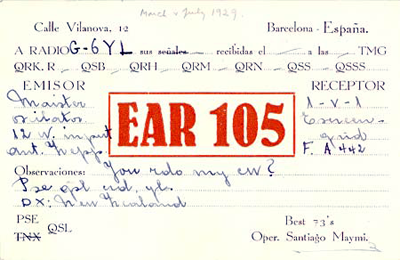 March & July 1929
Calle Vilanova, 12 Barcelona - España.
A RADIO G-6YL sus señales recibidas el a las TMG
QRK. R QSB QRH QRM QRN QSS QSSS
EMISOR RECEPTOR
Maister 1-V-1
oscilator EAR 105
12 W. input grid
ant. Hepp. F. A 442
Observaciones: You rdo my cw?
Pse qsl cd, yls.
DX: New Zealand
PSE
TNX QSL Best 73's
Oper. Santiago Maymi.